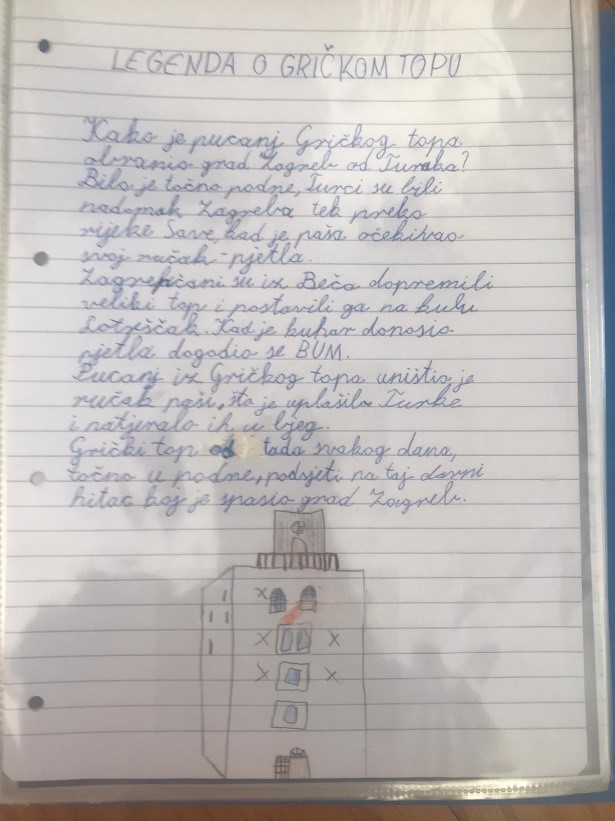 LEGENDA O GRIČKOM TOPU
Kako je pucanj Gričkog topa
obranio grad Zagreb od Turaka?
Bilo je točno podne, Turci su bili
nadomak Zagreba tek preko
rijeke Save, kad je paša očekivao
svoj ručak-pjetla.
Zagrepčani su iz Beča dopremili
veliki top i postavili ga na kulu
Lotrščak. Kad je kuhar donosio
pjetla dogodio se BUM.
Pucanj iz Gričkog topa uništio je
ručak paši, što je uplašilo Turke
i natjeralo ih u bjeg.
Grički top od tada svakog dana,
točno u podne, podsjeti na taj davni
hitac koj je spasio grad Zagreb.